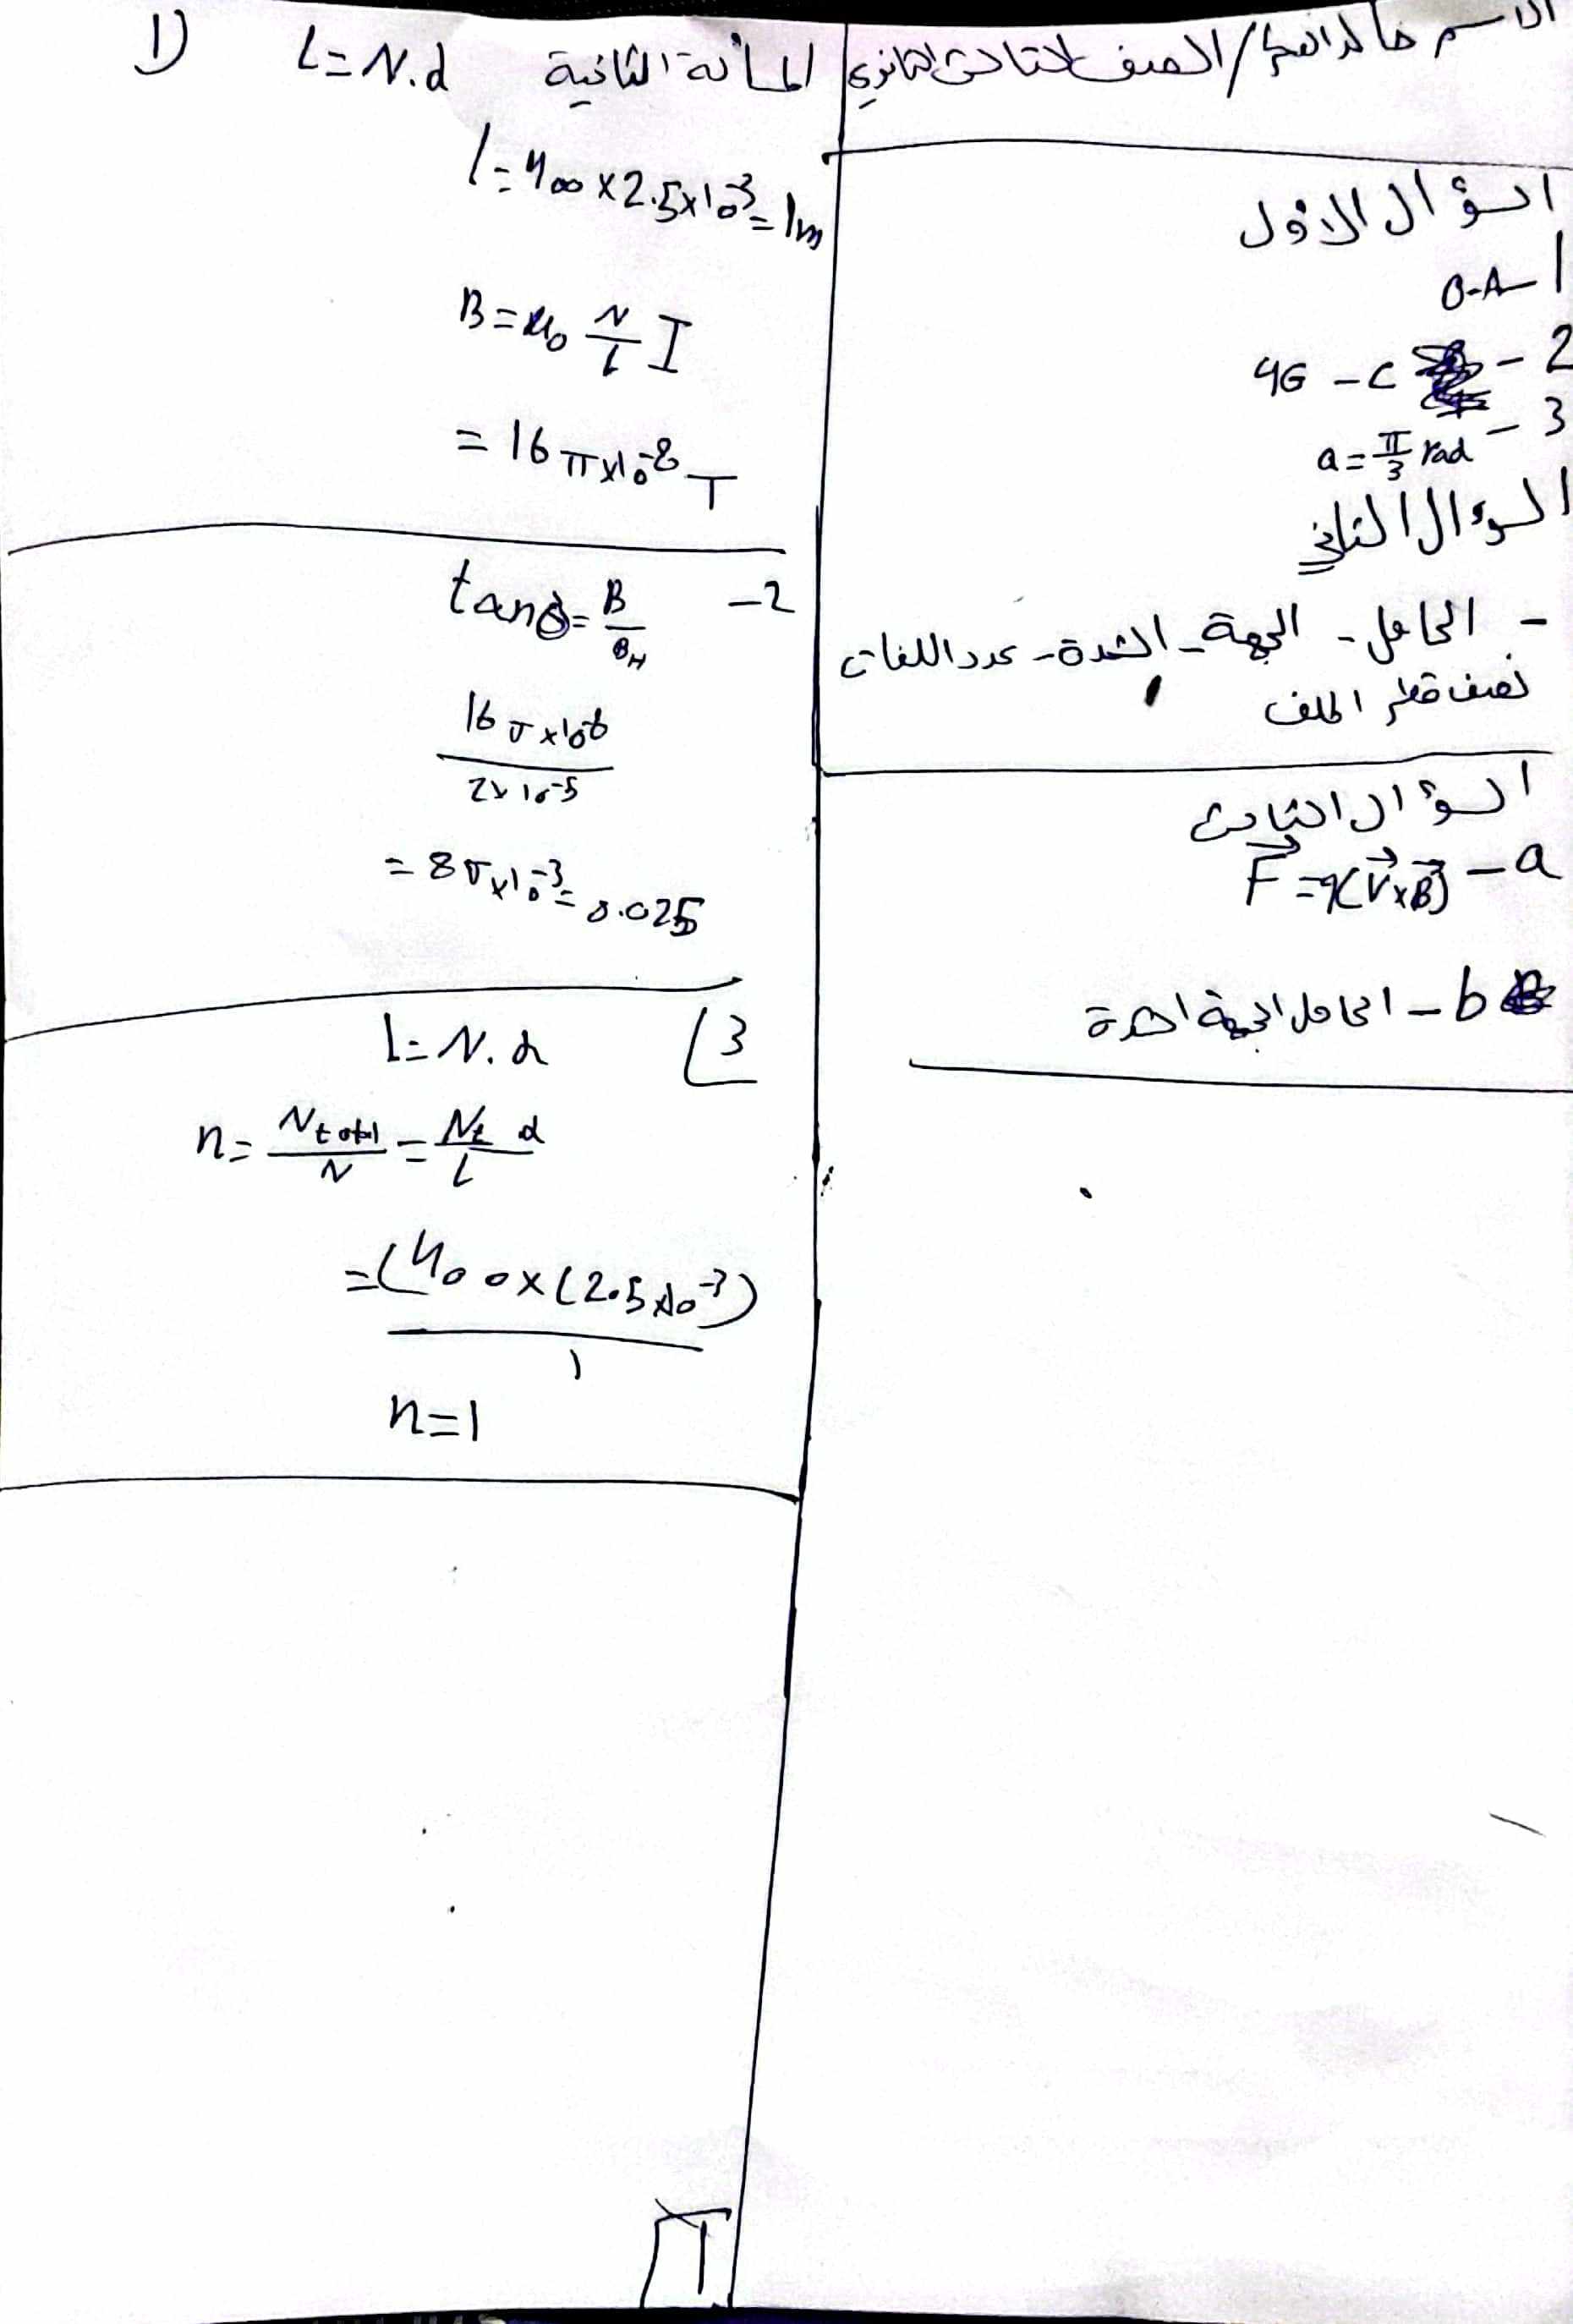 الاسم خالد / الصف الثالث الثانوي
السؤال الاول
1- A-0
2- C- 4G
3- a = π/3 rad
السوءال الثاني
- الحامل - الجهة - الشدة - عدد اللفات
نصف قطر الملف
السؤال الثالث
a- F = q(V×B)
b- الحامل الجهة الشدة
المسألة الثانية
1) L = N.d
l = 400 × 2.5×10⁻³ = 1m
B = μ₀ N/L I
= 16π×10⁻⁸ T
2- tanθ = B/B_H
16π×10⁻⁸ / 2×10⁻⁵
= 8π×10⁻³ = 0.025
3] L = N.d
n = N total / N = Nt d / L
= (400×(2.5×10⁻³) / 1
n = 1
1